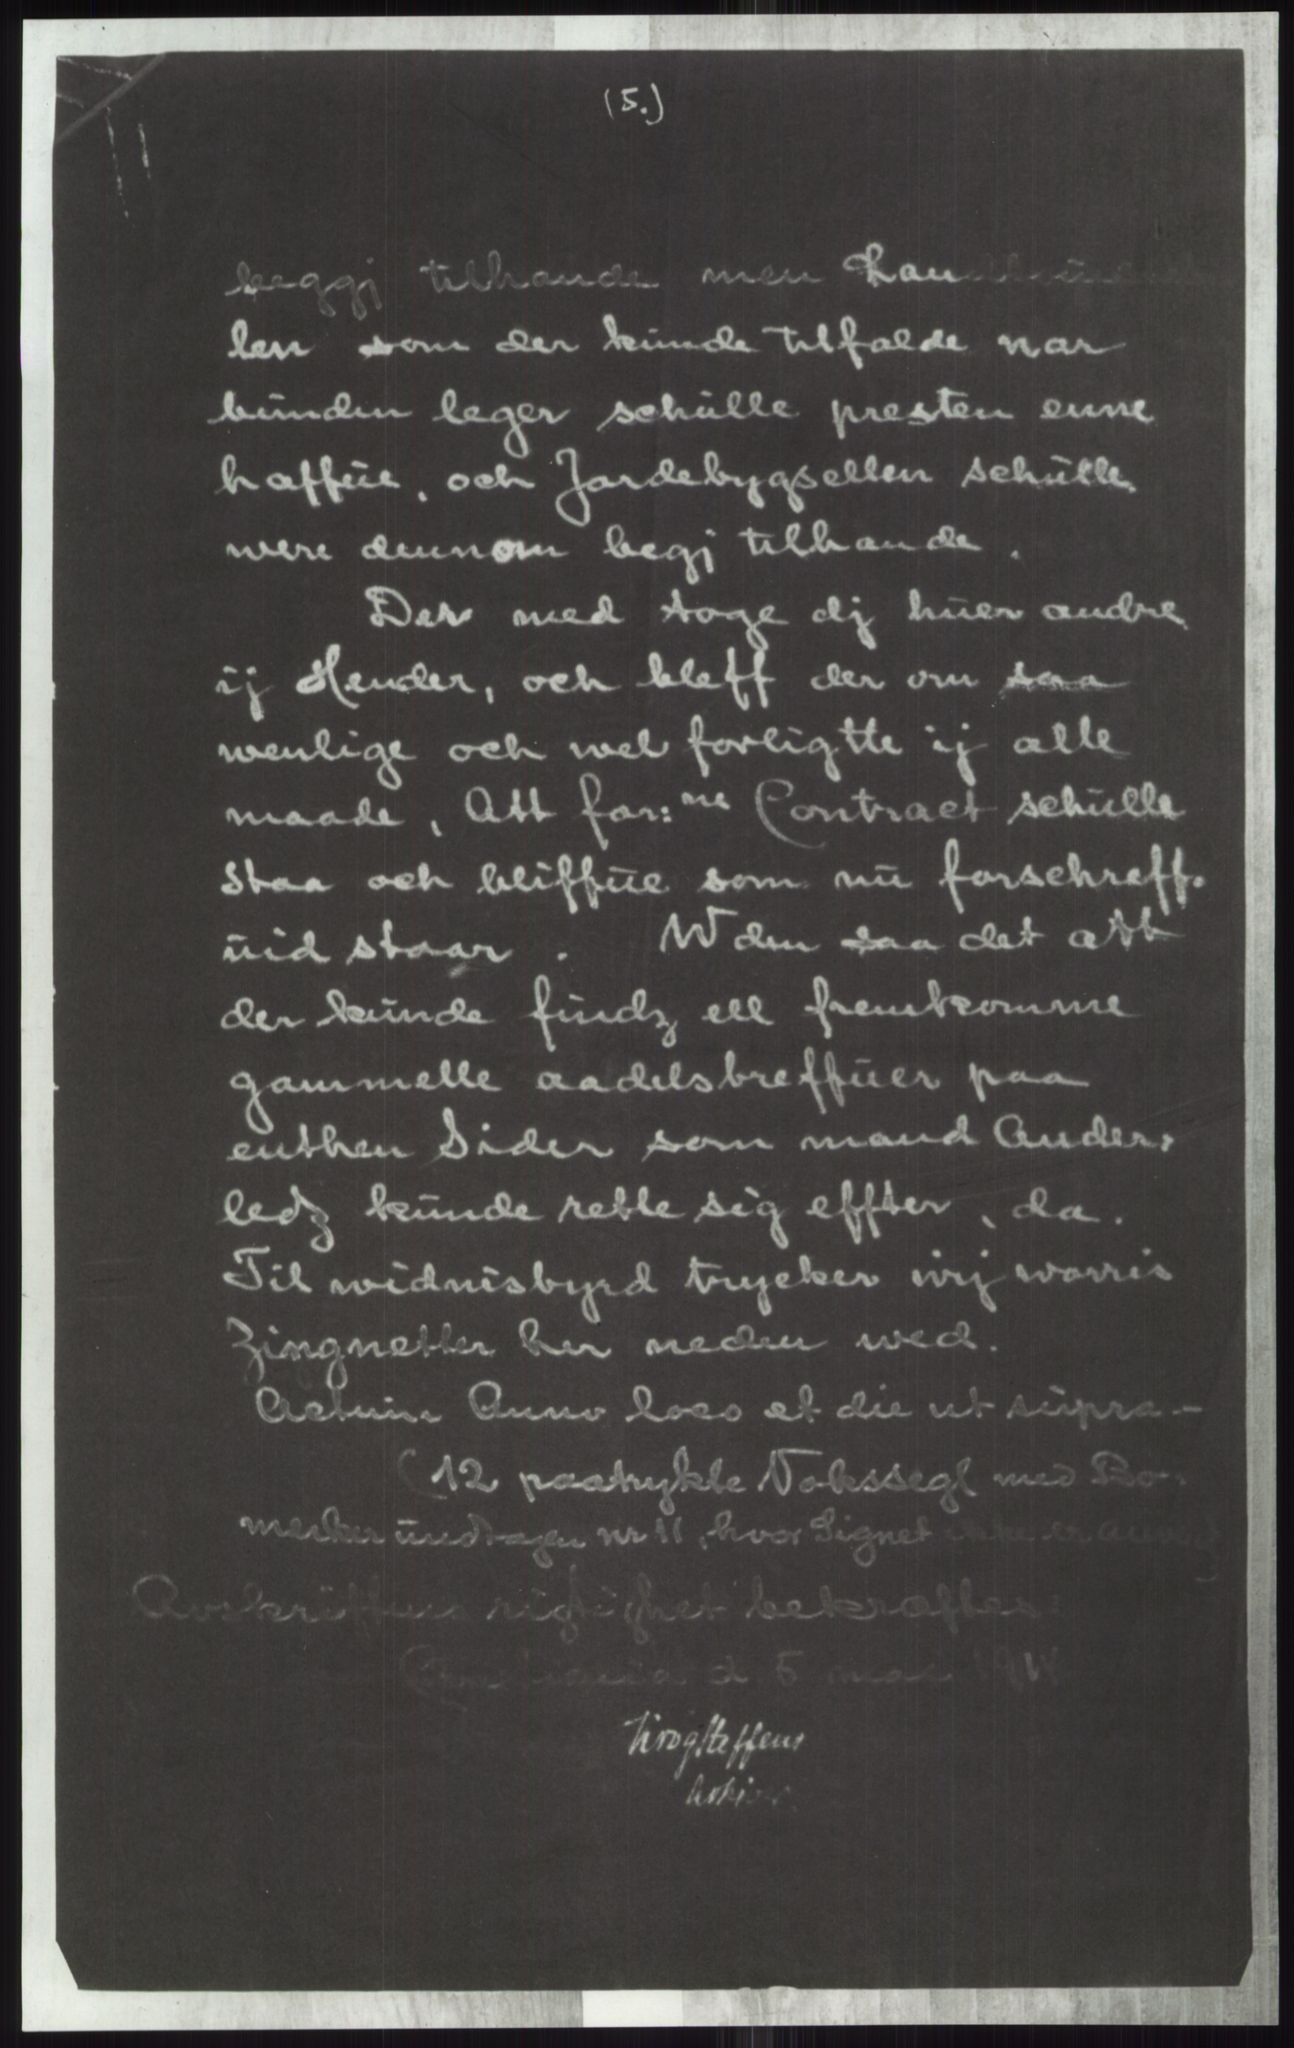 (5.)
beggj tilhande men
len som der kunde tilfalde nar
bunden leger schulle presten enne
haffue, och Jordebygsellen schulle
were dennom begj tilhande.
Der med toge dj huer andre
ij Hender, och bleff der om saa
wenlige och wel forligtte ij alle
maade, Att for:ne Contract schulle
staa och bliffue som nu forschreff.
uid staar. Wden saa det att
der kunde findz ell fremkomme
gammelle aadelsbreffuer paa
enthen Sider som mand Ander-
ledz kunde rette sig effter, da.
Til widnisbyrd trycker wij worris
Zingnetter her neden wed.
Actum Anno loco et die ut supra -
(12 paatrykte Vokssegl med Bo-
merker undtagen nr 11, hvor Signet ikke er
Avskriftens rigtighet bekræftes:
d. 5 mai
Krog Steffens